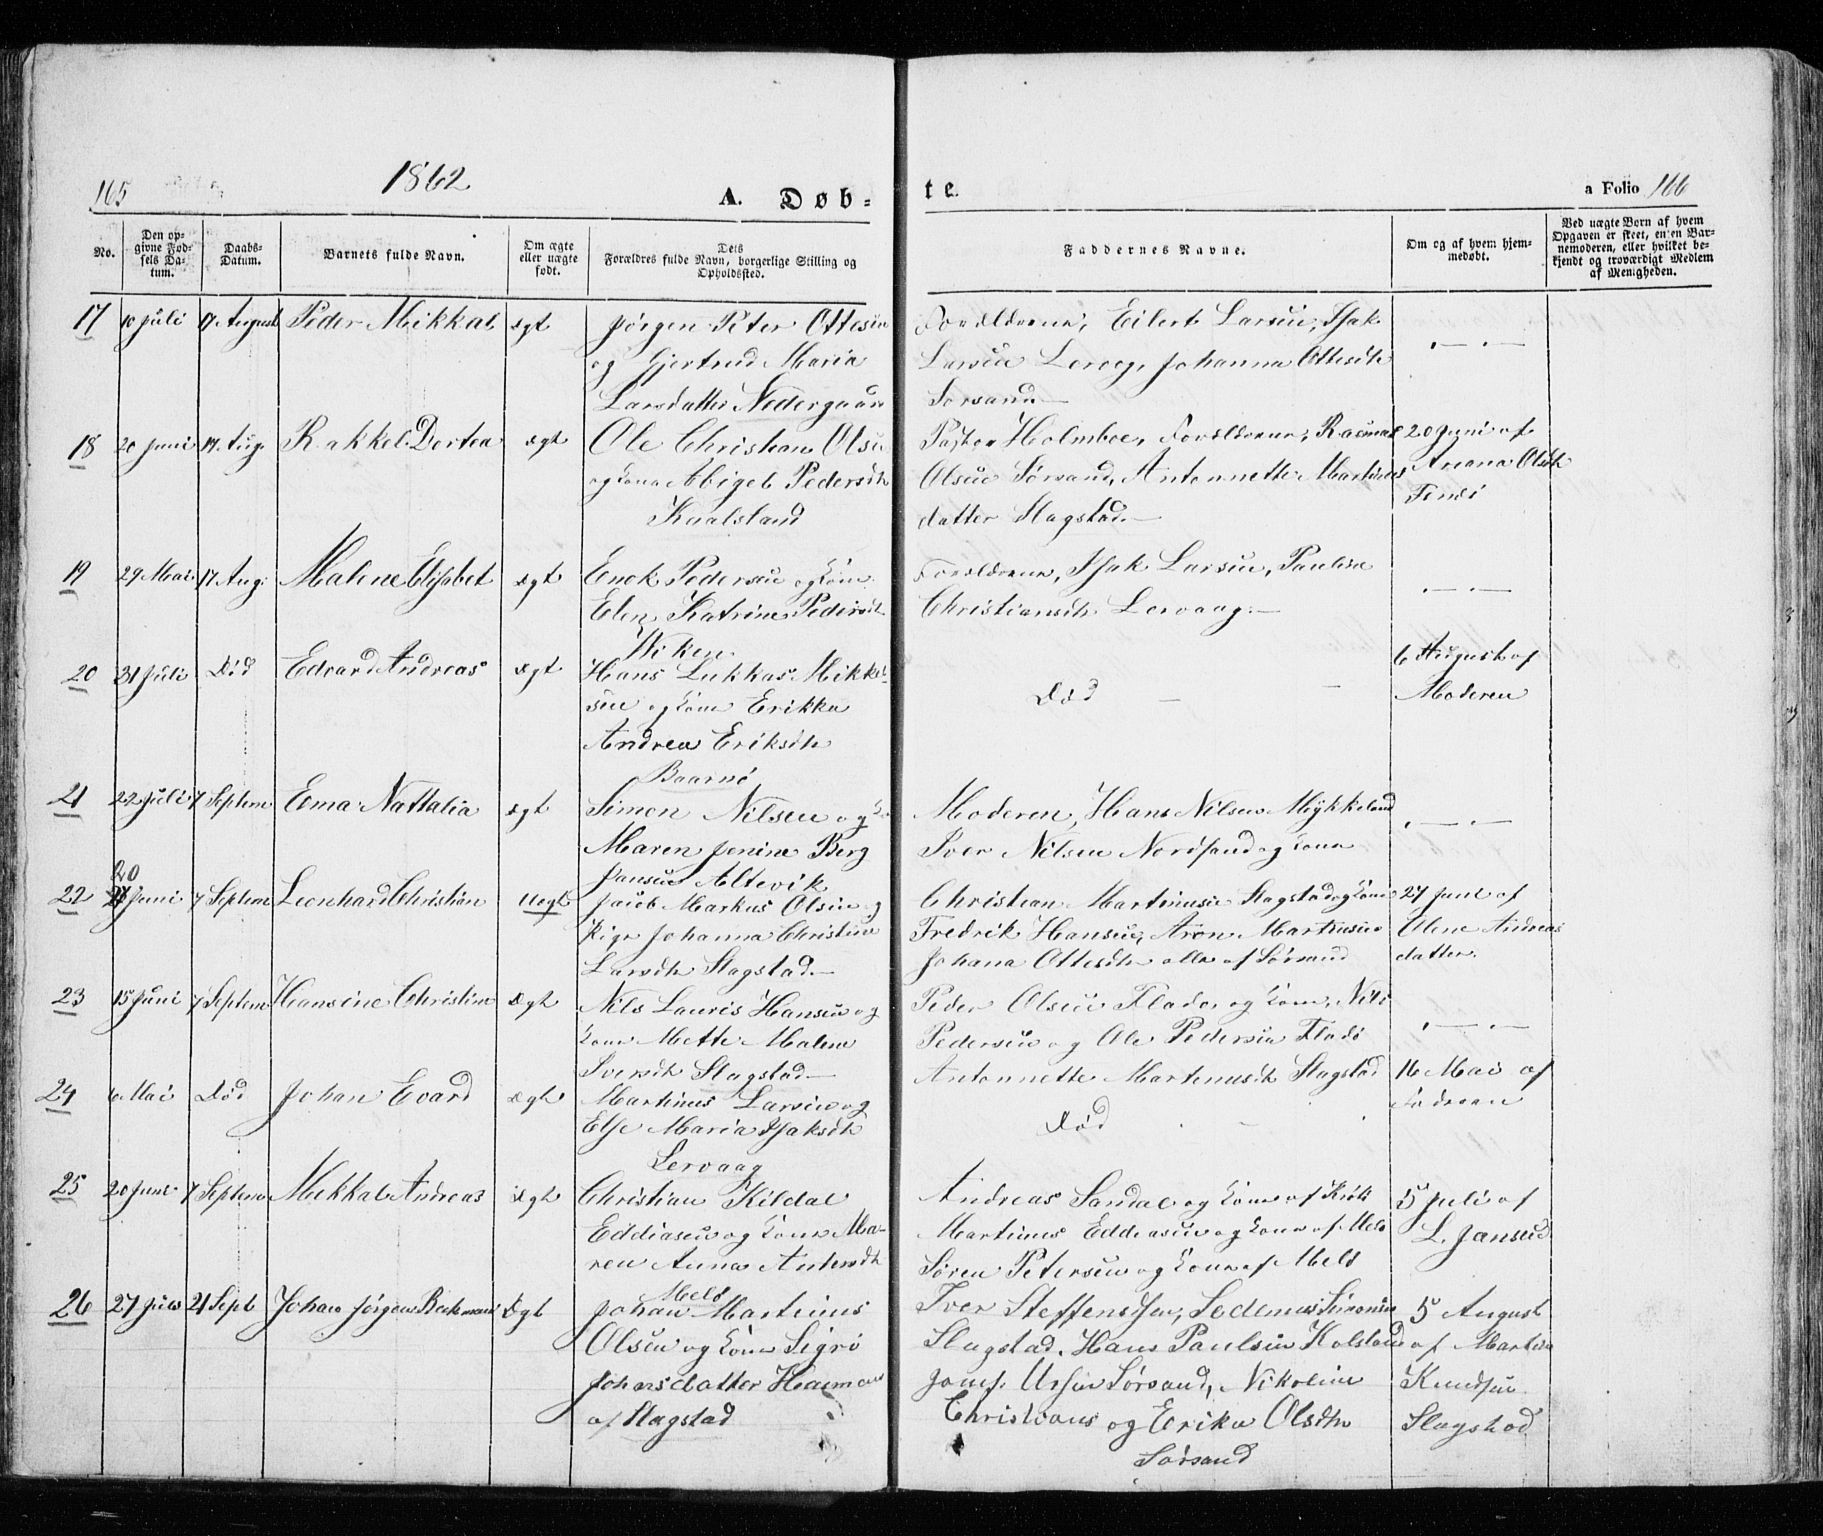 165
1862
A. Døb-
te.
a Folio 166
No.
Den op-
givne Fød-
sels Da-
tum.
Daabs-
Datum.
Barnets fulde Navn.
Om ægte
eller uægte
født.
Dets
Forældres fulde Navn, borgerlige Stilling og
Opholdssted.
Faddernes Navne.
Om og af hvem hjem-
medøbt.
Ved uægte Børn af hvem
Opgaven er skeet, enten Bar-
nemoderen, eller hvilket be-
kjendt og troværdigt Medlem
af Menigheden.
17 10 Juli 17 August Peder Mikkal Ægt
Jørgen Peter Ottesen
og Gjertrud Maria
Larsdatter Nedergaard
Forældrene, Eilert Larsen, Isak
Larsen Lervog, Johanna Ottesdtr
Sørsand
18 20 Juni 17 Aug. Rakkel Dortea Ægt
Ole Christian Olsen
og Kone Abigel Pedersdtr
Kaalsland
Pastor Holmboe, Forældrene, Rasmus
Olsen Sørsand, Antonnette Martinus
datter Slagstad.
20 Juni af
Anana Olsdtr
19 29 Mai 17 Aug: Malene Elisbet Ægt
Enok Pedersen og Kone
Elen Katrine Pedersdtr
Wiken
Forældrene, Isak Larsen, Paulina
Christiansdtr Lervaag.
20 31 Juli Død Edvard Andreas Ægt
Hans Lukkas Mikkel-
sen og Kone Erikka
Andrea Eriksdtr
Baarnø
Død
6 August af
Moderen
21 22 Juli 7 Septem Erna Nattalia Ægt
Simon Nilsen og K
Maren Jenine Berg
Jansen Altevik
Moderen, Hans Nilsen Mykkeland
Iver Nilsen Nordsand og Kone
22 20 Juni 7 Septem Leonhard Christian Uegt
Jacob Markus Olsen og
Pige Johanna Christine
Larsdtr Slagstad
Christian Martinusen Slagstad og Kone
Fredrik Hansen, Aron Martinusen
Johana Ottesdtr alle af Sørsand
27 Juni af
Olene Andreas
datter.
23 15 Juni 7 Septem Hansine Christine Ægt
Nils Lauris Hansen og
Kone Mette Malene
Iversdtr Slagstad
Peder Olsen Fladø, og Kone, Nils
Pedersen og Ole Pedersen Fladø
Antonnette Martinusdtr Slagstad
24 6 Mai Død Johan Evard Ægt
Martinus Larsen og
Else Maria Isaksdtr
Lervaag
Død
16 Mai af
Fadreen
25 20 Juni 7 Septem Mikkal Andreas Ægt
Christian Kildal
Eddiasen og Kone Ma-
ren Anna Antonsdtr
Mels
Andreas Sandal og Kone af
Martinus Eddiasen og Kone af Mels
Søren Petersen og Kone af Mels
5 Juli af
L. Jansen
26 27 Juni 21 Sept Johan Jørgen Ægt
Johan Martinus
Olsen og Kone Sigrø
Johansdatter
af Slagstad
Iver Steffensen, Simonsen
Slagstad, Hans Paulsen Kolsland
Sørsand, Nikoline
Christians og Erika Olsdtr
Sørsand
5 August
af Martin
Knudsen
Slagstad